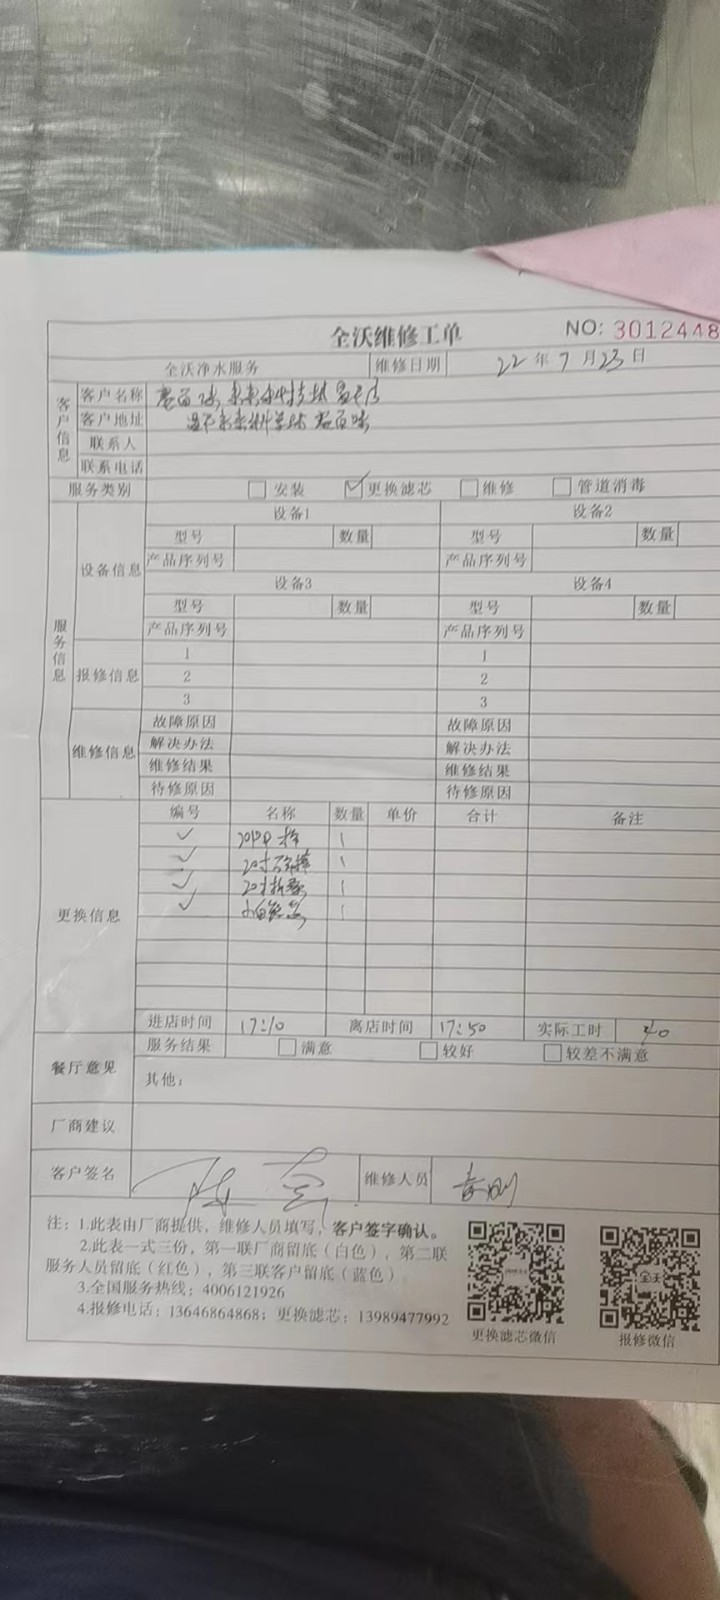 全沃维修工单 NO: 3012448
全沃净水服务 维修日期 22年7月23日
客户信息
客户名称
客户地址
联系人
联系电话
服务类别 安装 更换滤芯 维修 管道消毒
服务信息
设备信息
设备1 设备2
型号 数量 型号 数量
产品序列号 产品序列号
设备3 设备4
型号 数量 型号 数量
产品序列号 产品序列号
报修信息
1 1
2 2
3 3
维修信息
故障原因 故障原因
解决办法 解决办法
维修结果 维修结果
待修原因 待修原因
更换信息
编号 名称 数量 单价 合计 备注
✓ 1
✓ 20寸 1
✓ 20寸 1
✓ 1
进店时间 17:10 离店时间 17:50 实际工时 40
餐厅意见
服务结果 满意 较好 较差不满意
其他:
厂商建议
客户签名 维修人员
注: 1.此表由厂商提供, 维修人员填写, 客户签字确认。
2.此表一式三份, 第一联厂商留底(白色), 第二联
服务人员留底(红色), 第三联客户留底(蓝色)
3.全国服务热线: 4006121926
4.报修电话: 13646864868; 更换滤芯: 13989477992
更换滤芯微信 报修微信
全沃